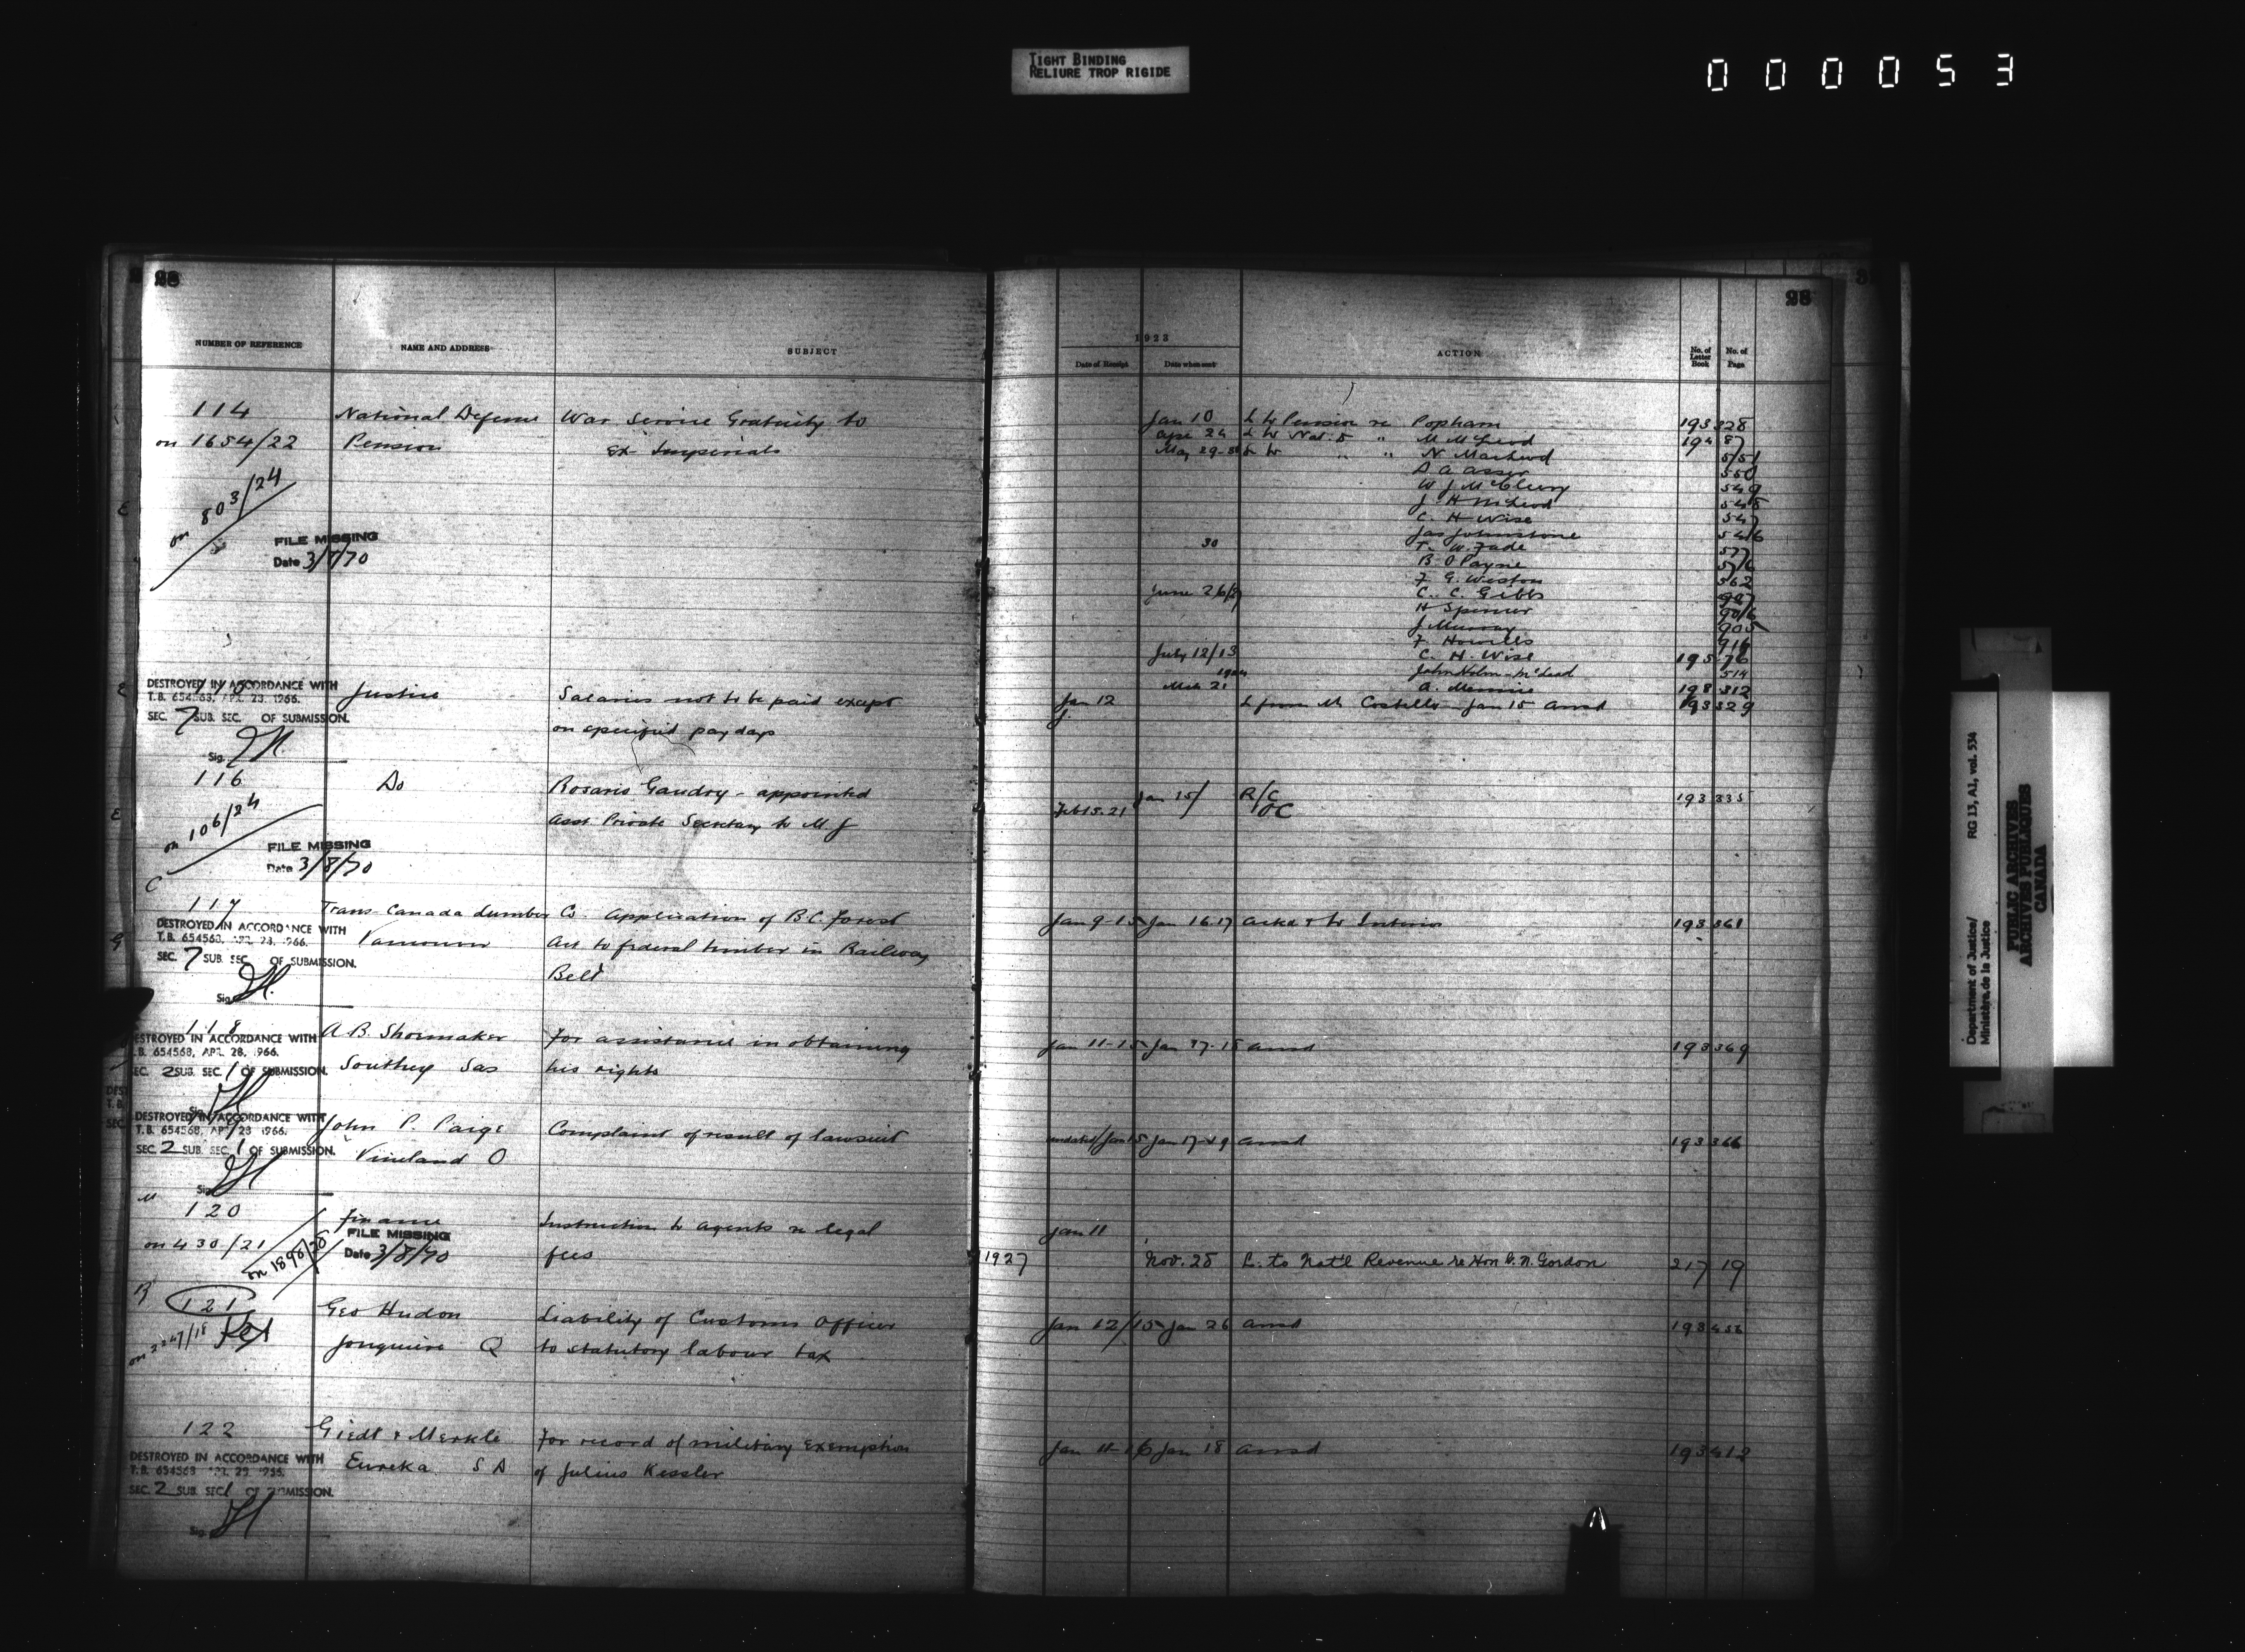 TIGHT BINDING
RELIURE TROP RIGIDE
0 0 0 0 5 3
28
NUMBER OF REFERENCE NAME AND ADDRESS SUBJECT
114 National Defense War Service Gratuity to
on 1654/22 Pension Ex Imperials
on 803/24
FILE MISSING
Date 3/8/70
DESTROYED IN ACCORDANCE WITH
T.B. 654568, APR. 28, 1966.
SEC. 7 SUB. SEC. OF SUBMISSION.
Sig.
115 Justice Salaries not to be paid except
on specified pay days
116 Do Rosario Gaudry - appointed
on 106/24 Asst Private Secretary to M J
FILE MISSING
Date 3/8/70
C
117 Trans-Canada Lumber Co. Application of B.C. Forest
DESTROYED IN ACCORDANCE WITH
T.B. 654568, APR. 28, 1966.
Vancouver Act to federal timber in Railway
SEC. 7 SUB. SEC. OF SUBMISSION.
Belt
Sig.
118 A. B. Shoemaker For assistance in obtaining
DESTROYED IN ACCORDANCE WITH
T.B. 654568, APR. 28, 1966.
Southey Sas his rights
SEC. 2 SUB. SEC. 1 OF SUBMISSION.
John P. Paige Complaint of result of lawsuit
DESTROYED IN ACCORDANCE WITH
T.B. 654568, APR. 28 1966.
SEC. 2 SUB. SEC. 1 OF SUBMISSION.
Vineland O
Sig.
120 Finance Instruction to agents re legal
on 430/21 on 1898/28 fees
FILE MISSING
Date 3/8/70
121 Geo Hudon Liability of Customs Officer
Jonquiere Q to statutory labour tax
122 Giedt & Merkle For record of military exemption
DESTROYED IN ACCORDANCE WITH
Eureka S D of Julius Kessler
SEC. 2 SUB. SEC 1 OF SUBMISSION.
Sig.
28
1923
Date of Receipt Date when sent ACTION No. of Letter Book No. of Page
Jan 10 L to Pension re Popham 193 328
Apr 24 L to Nat. D " M McLeod 194 87
May 29 L to " " N. MacLeod 551
D A Asser 550
W J McCleery 549
J. H McLeod 548
C. H Wise 547
Jas Johnstone 546
30 T. W. Fade 577
B O Payne 576
F G. Weston 562
June 26/8 C. C. Gibbs 907
H Spencer 906
J Murray 905
F. Howells 916
July 12/13 C. H. Wise 195 76
John McLeod 514
Mch 21 A. 198 312
Jan 12 L from Mr Costello Jan 15 Ansd 193 329
J.
Jan 15/ R/C 193 335
Feb 15. 21 OC
Jan 9-15 Jan 16.17 Ackd & to Interior 193 361
Jan 11-15 Jan 17-18 Ansd 193 369
undated/Jan 15 Jan 17-19 Ansd 193 366
Jan 11
1927 Nov. 28 L. to Nat'l Revenue re Hon G. N. Gordon 217 19
Jan 12/15 Jan 26 Ansd 193 456
Jan 11-16 Jan 18 Ansd 193 412
Department of Justice/
Ministère de la Justice
RG 13, A1, vol. 534
PUBLIC ARCHIVES
ARCHIVES PUBLIQUES
CANADA